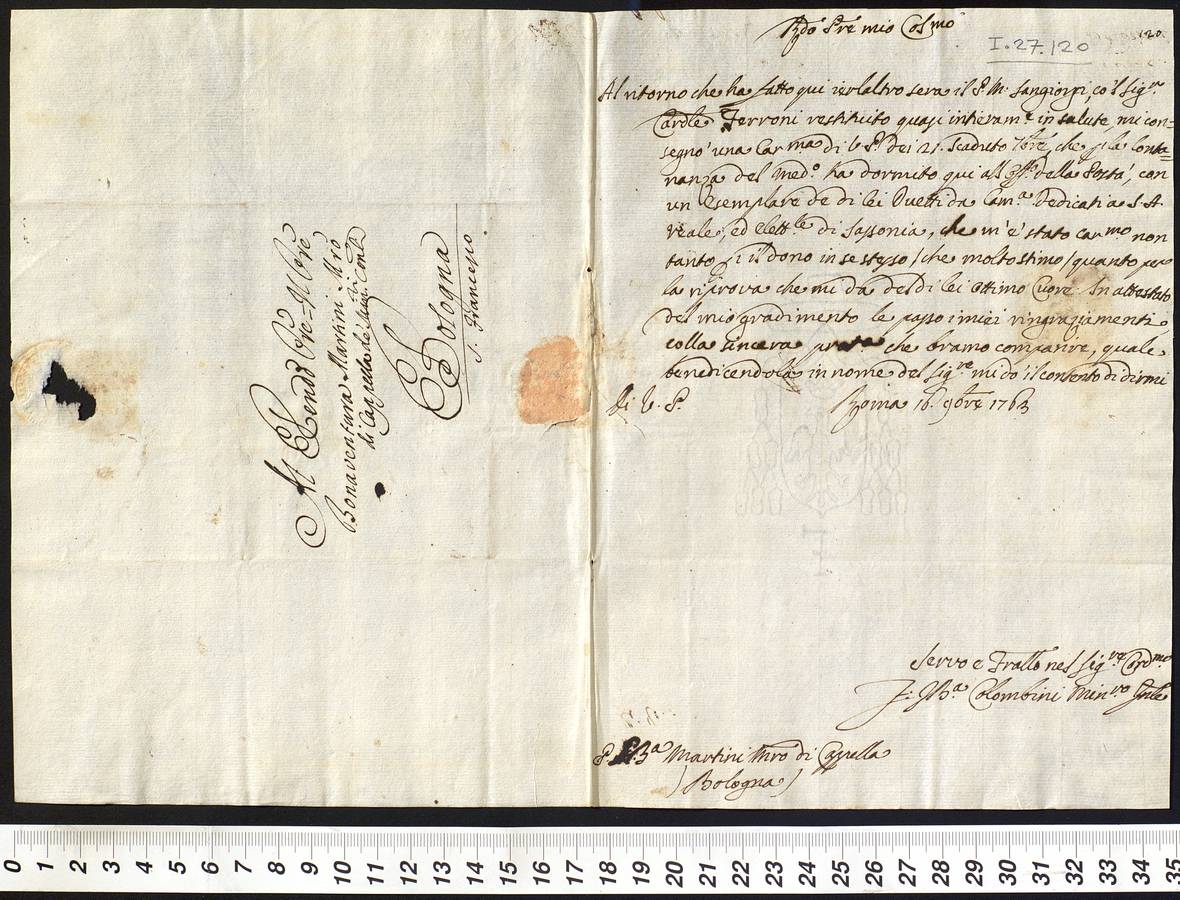 Al Rendo Pre=Pre Mre
Bonaventura Martini Mro
di Cappella de Min: Conti
Bologna
S. Francesco
Rdo Pre mio Cosmo
120
I.27.120
Al ritorno che ha fatto qui ierlaltro sera il P. M. Sangiorgi, col Sigr.
Cardle Ferroni restituito quasi intieramte in salute, mi con=
segnò una Carma di V. P. dei 21. Scaduto 7bre, che p la lonta=
nanza del Medo ha dormito qui all' Offo della Posta, con
un Esemplare de di lei Duetti da Cama Dedicati a S. A.
reale, ed Elettle di Sassonia, che m'è stato carmo non
tanto p il dono in se stesso /che molto stimo/ quanto per
la riprova che mi da del di lei ottimo Cuore. In attestato
del mio gradimento le passo i miei ringraziamenti
colla sincera che bramo comparire, quale
benedicendola in nome del Sigre mi do il contento di dirmi
di V. P.
Roma 16. 9bre 1763
Servo e Frallo nel Sigre Cordmo
F. G Ba Colombini Minro Gnle
P. G. Ba Martini Mro di Cappella
(Bologna)
0 1 2 3 4 5 6 7 8 9 10 11 12 13 14 15 16 17 18 19 20 21 22 23 24 25 26 27 28 29 30 31 32 33 34 35